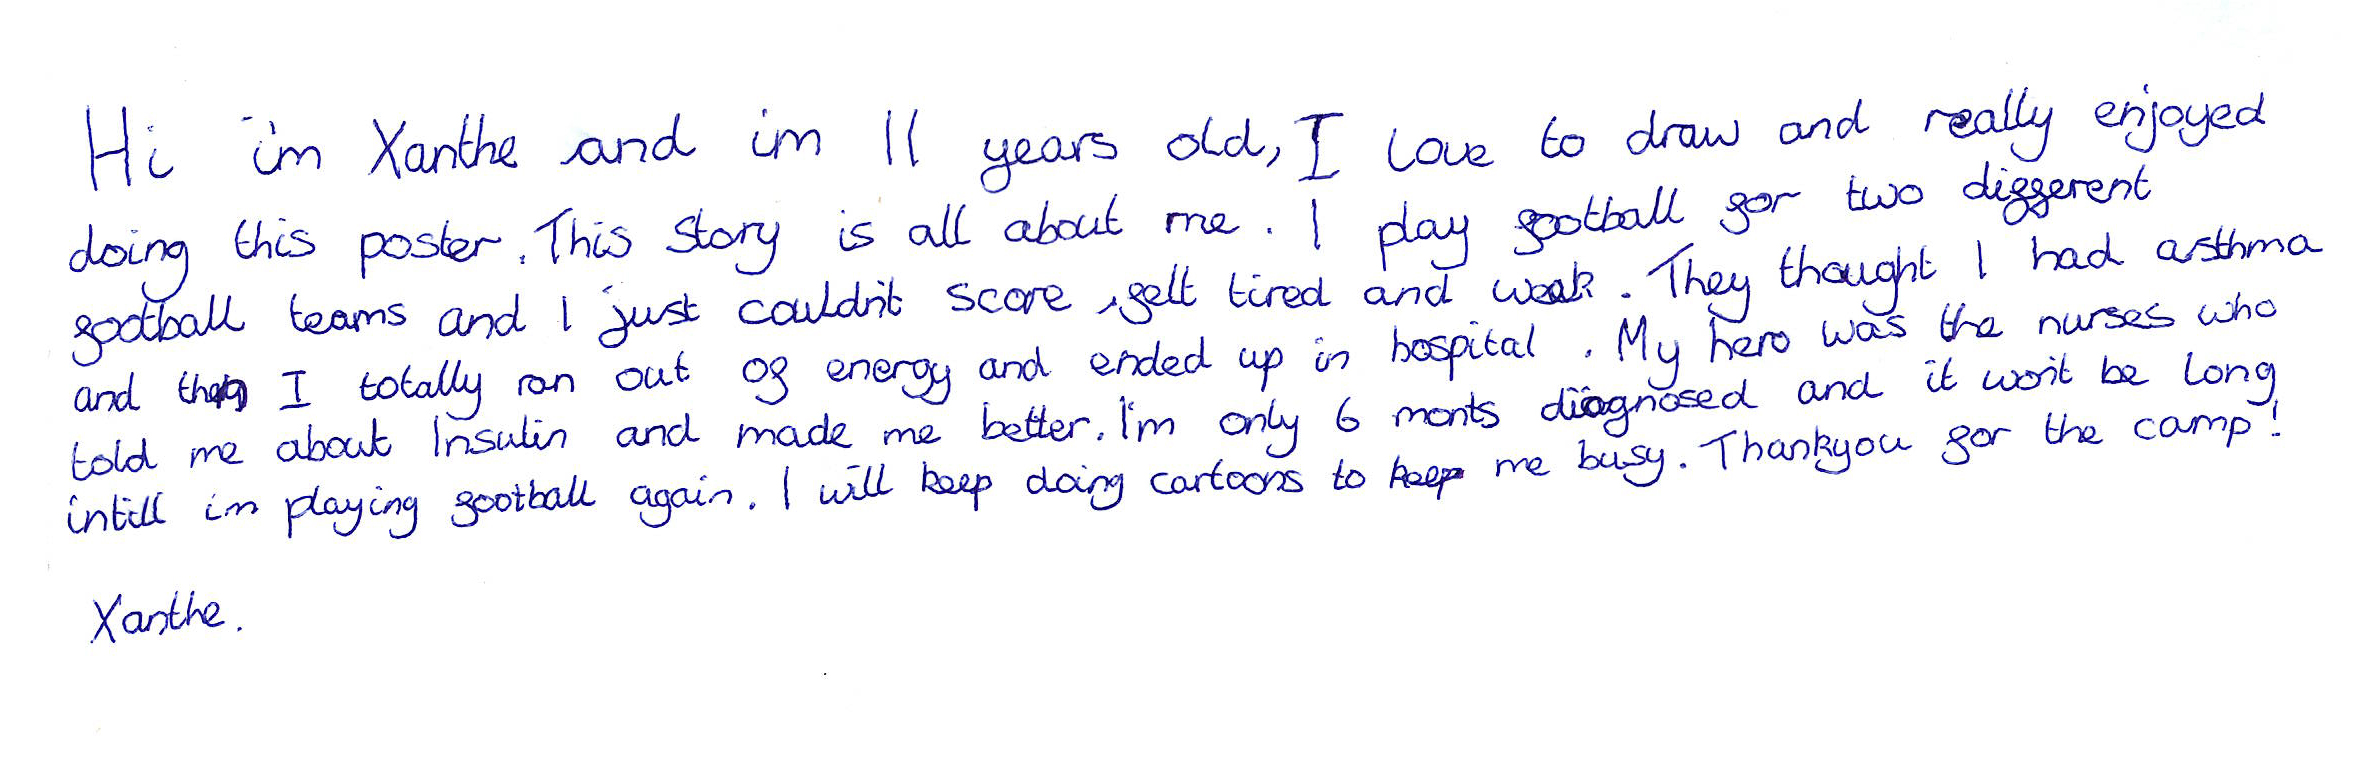 Hi i'm Xanthe and im 11 years old, I love to draw and really enjoyed
doing this poster. This story is all about me. I play football for two different
football teams and I just couldn't score, felt tired and weak. They thought I had asthma
and then I totally ran out of energy and ended up in hospital. My hero was the nurses who
told me about Insulin and made me better. I'm only 6 monts diagnosed and it won't be long
intill im playing football again. I will keep doing cartoons to keep me busy. Thankyou for the camp!
Xanthe.